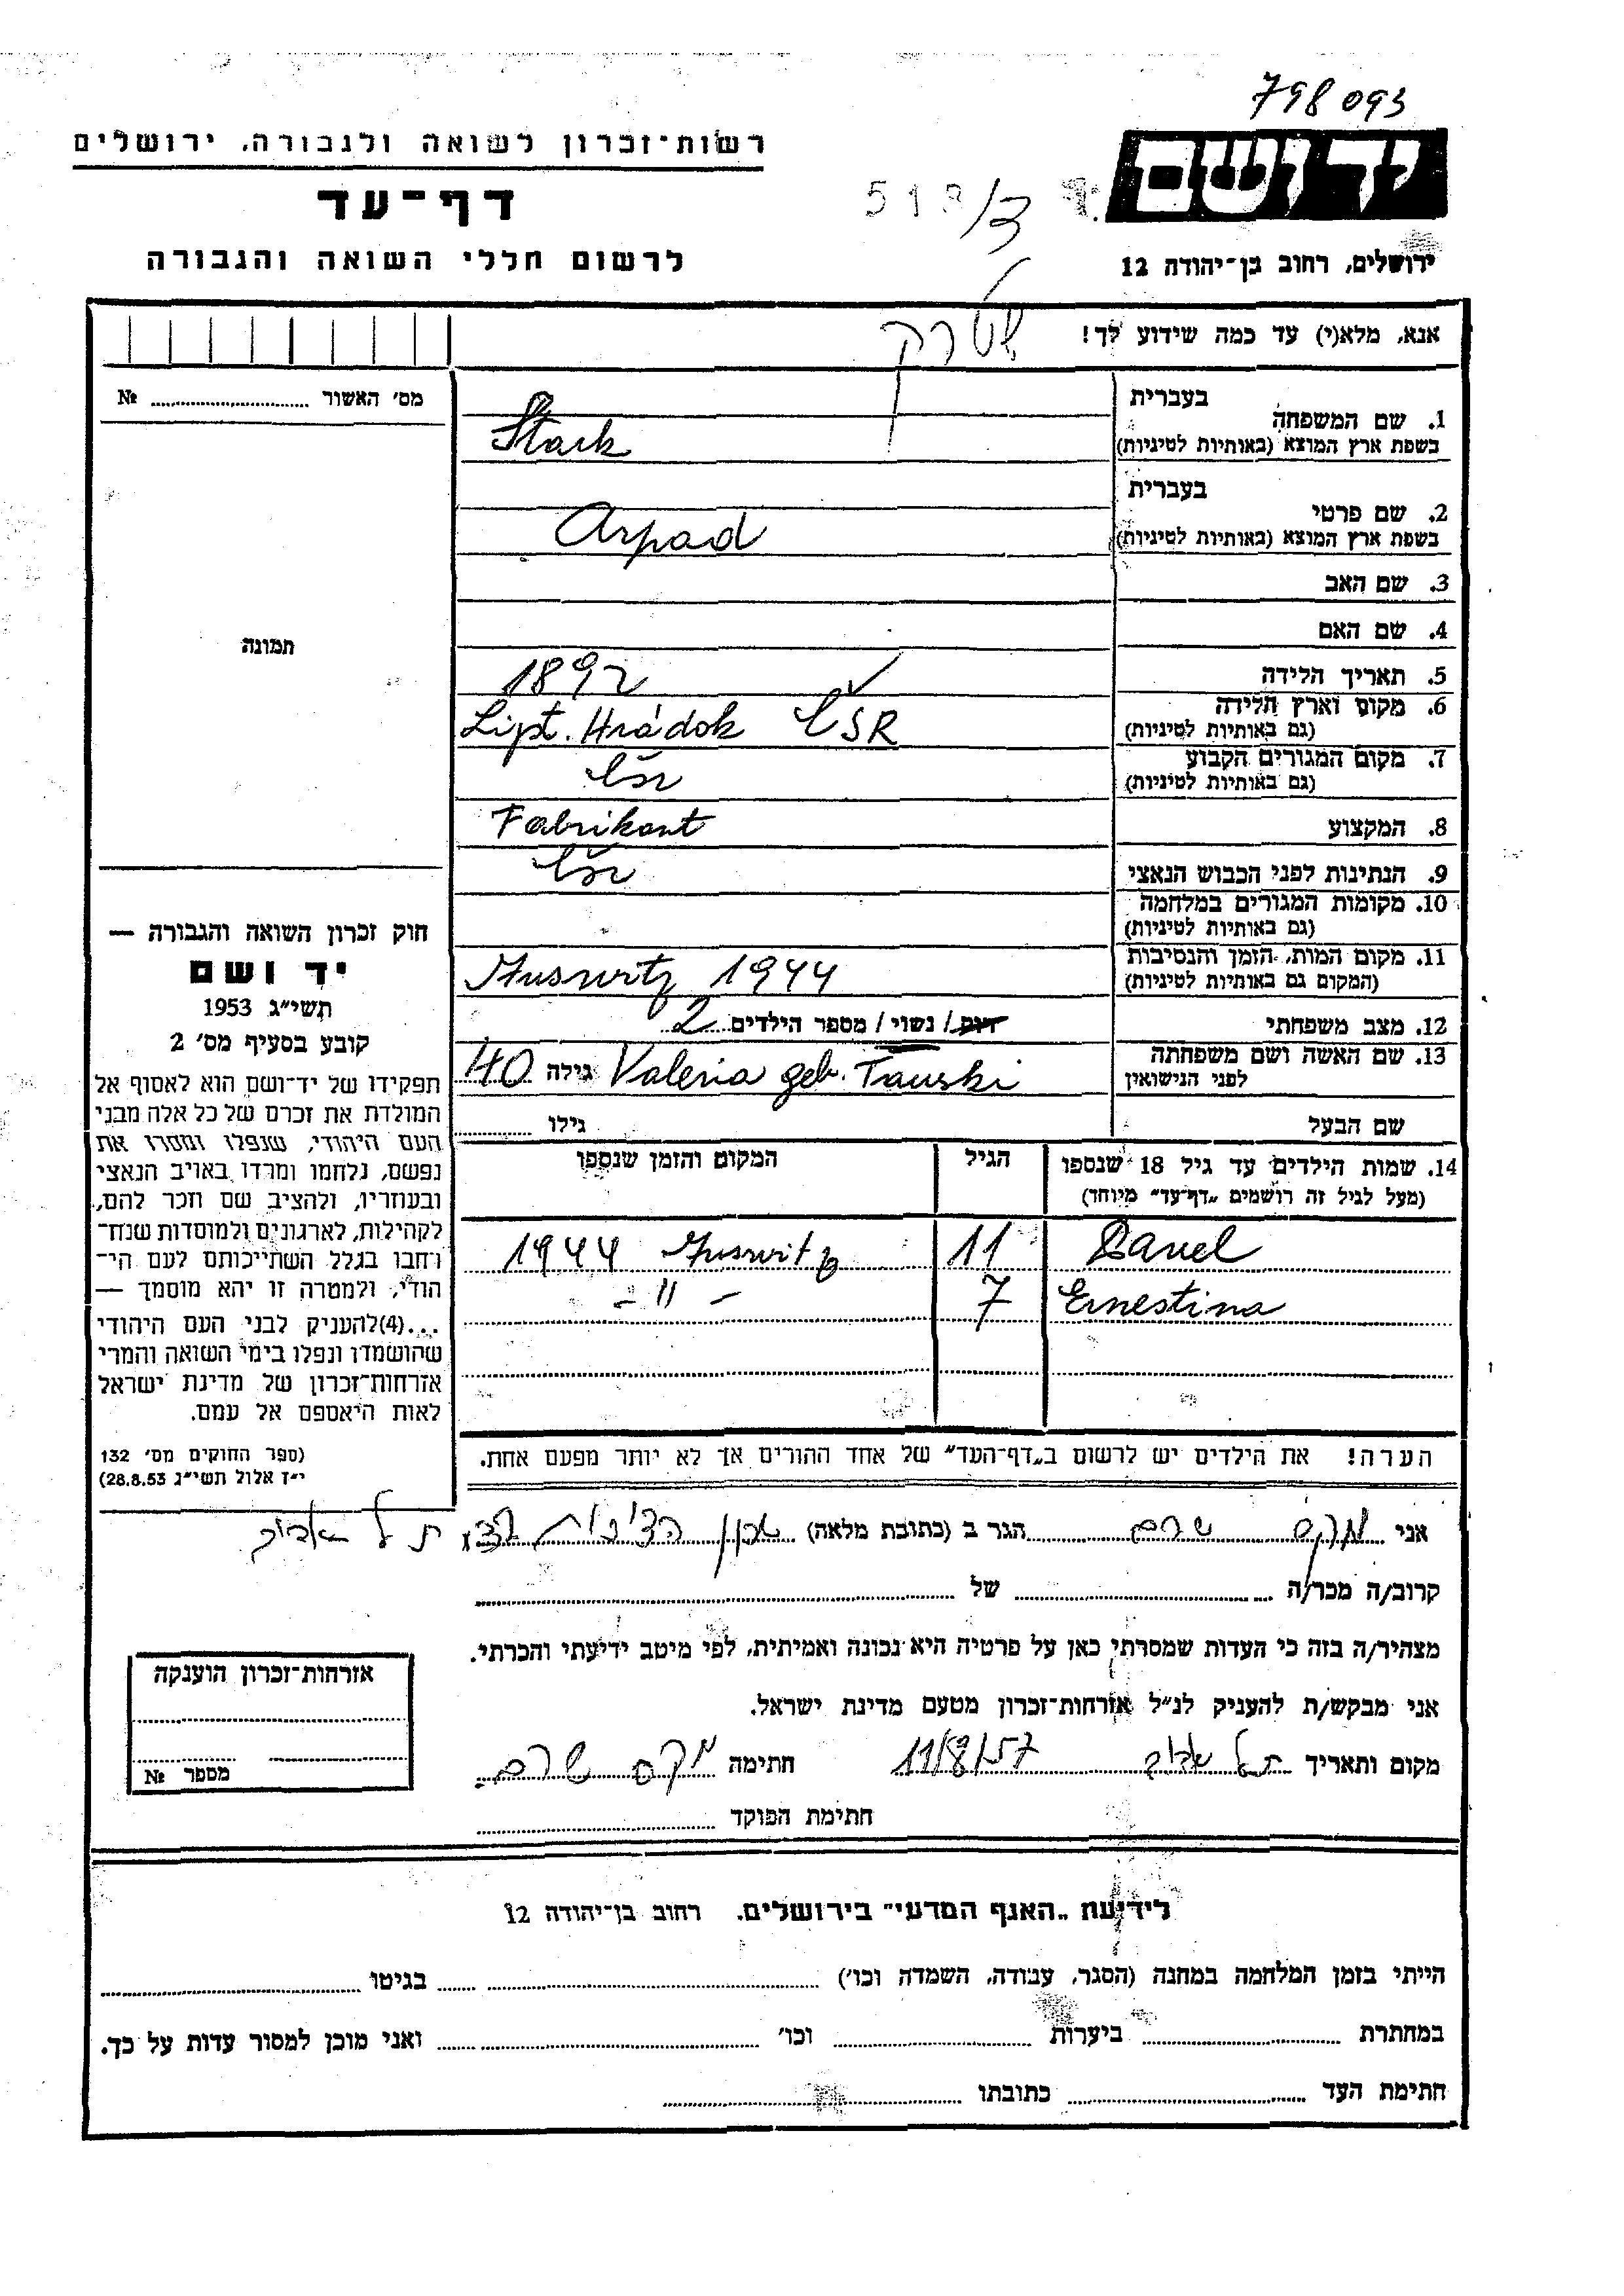 798093
יד ושם
רשות־זכרון לשואה ולגבורה, ירושלים
518/3
דף־עד
לרשום חללי השואה והגבורה
ירושלים, רחוב בן־יהודה 12
אנא, מלא(י) עד כמה שידוע לך!
שטרק
מס׳ האשור ........ №
בעברית
1. שם המשפחה
בשפת ארץ המוצא (באותיות לטיניות) Stark
בעברית
2. שם פרטי
בשפת ארץ המוצא (באותיות לטיניות) Arpad
3. שם האב
4. שם האם
תמונה
5. תאריך הלידה 1892
6. מקום וארץ הלידה
(גם באותיות לטיניות) Lipt. Hrádok ČSR
7. מקום המגורים הקבוע
(גם באותיות לטיניות) čsr
8. המקצוע Fabrikant
9. הנתינות לפני הכבוש הנאצי čsr
10. מקומות המגורים במלחמה
(גם באותיות לטיניות)
11. מקום המות, הזמן והנסיבות
(המקום גם באותיות לטיניות) Auswitz 1944
12. מצב משפחתי רווק / נשוי / מספר הילדים 2
13. שם האשה ושם משפחתה
לפני הנישואין Valeria geb. Tauski גילה 40
שם הבעל גילו ........
חוק זכרון השואה והגבורה —
יד ושם
תשי״ג 1953
קובע בסעיף מס׳ 2
תפקידו של יד־ושם הוא לאסוף אל
המולדת את זכרם של כל אלה מבני
העם היהודי, שנפלו ומסרו את
נפשם, נלחמו ומרדו באויב הנאצי
ובעוזריו, ולהציב שם וזכר להם,
לקהילות, לארגונים ולמוסדות שנח־
רחבו בגלל השתייכותם לעם הי־
הודי, ולמטרה זו יהא מוסמך —
...(4)להעניק לבני העם היהודי
שהושמדו ונפלו בימי השואה והמרי
אזרחות־זכרון של מדינת ישראל
לאות היאספם אל עמם.
(ספר החוקים מס׳ 132
י״ז אלול תשי״ג 28.8.53)
14. שמות הילדים עד גיל 18 שנספו הגיל המקום והזמן שנספו
(מעל לגיל זה רושמים „דף־עד״ מיוחד)
Pavel 11 1944 Auswitz
Ernestina 7 - 11 -
הערה! את הילדים יש לרשום ב„דף־העד״ של אחד ההורים אך לא יותר מפעם אחת.
אני ........ הגר ב (כתובת מלאה) ........ תל אביב
קרוב/ה מכר/ה ........ של ........
מצהיר/ה בזה כי העדות שמסרתי כאן על פרטיה היא נכונה ואמיתית, לפי מיטב ידיעתי והכרתי.
אני מבקש/ת להעניק לנ״ל אזרחות־זכרון מטעם מדינת ישראל.
מקום ותאריך תל אביב 11/8/57 חתימה
חתימת הפוקד
אזרחות־זכרון הוענקה
מספר №
לידיעת „האגף המדעי״ בירושלים. רחוב בן־יהודה 12
הייתי בזמן המלחמה במחנה (הסגר, עבודה, השמדה וכו׳) ........ בגיטו ........
במחתרת ........ ביערות ........ וכו׳ ........ ואני מוכן למסור עדות על כך.
חתימת העד ........ כתובתו ........